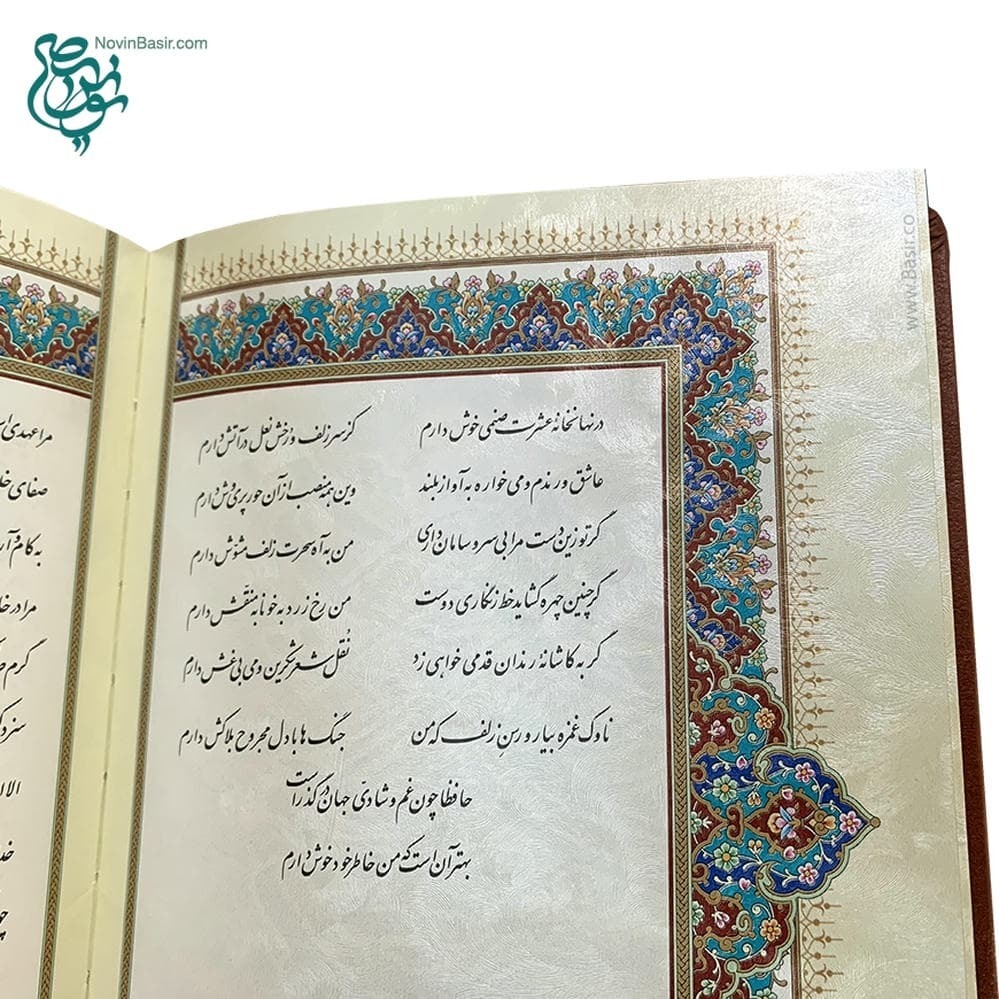 NovinBasir.com
www.Basir.co
در نهانخانهٔ عشرت صنمی خوش دارم
کز سر زلف و رخش نعل در آتش دارم
عاشق و رندم و میخواره به آواز بلند
وین همه منصب از آن حور پریوش دارم
گر تو زین دست مرا بی سر و سامان داری
من به آه سحرت زلف مشوّش دارم
گر چنین چهره گشاید خط زنگاری دوست
من رخ زرد به خونابه منقّش دارم
گر به کاشانهٔ رندان قدمی خواهی زد
نُقل شعر شکرین و می بی غش دارم
ناوک غمزه بیار و رسنِ زلف که من
جنگ ها با دل مجروح بلاکش دارم
حافظا چون غم و شادیّ جهان در گذر است
بهتر آن است که من خاطر خود خوش دارم
مرا عهدی
صفای
به کام و
مرا در
گرم
الا